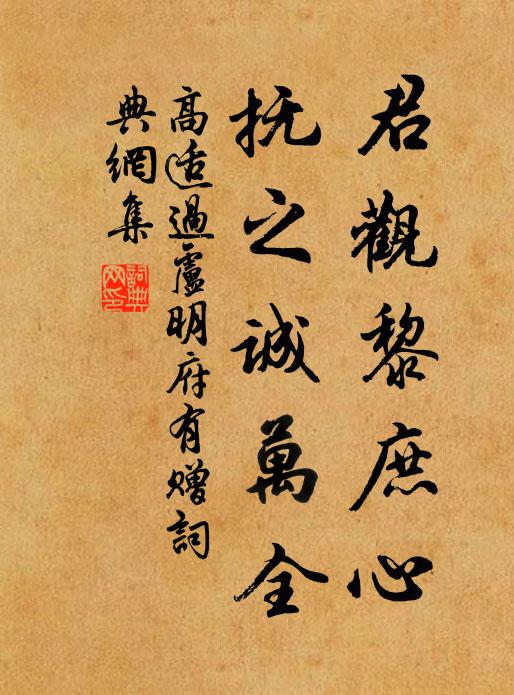 君觀黎庶心
抚之诚萬全
高适過盧明府有赠詞
典網集
詞典
网印